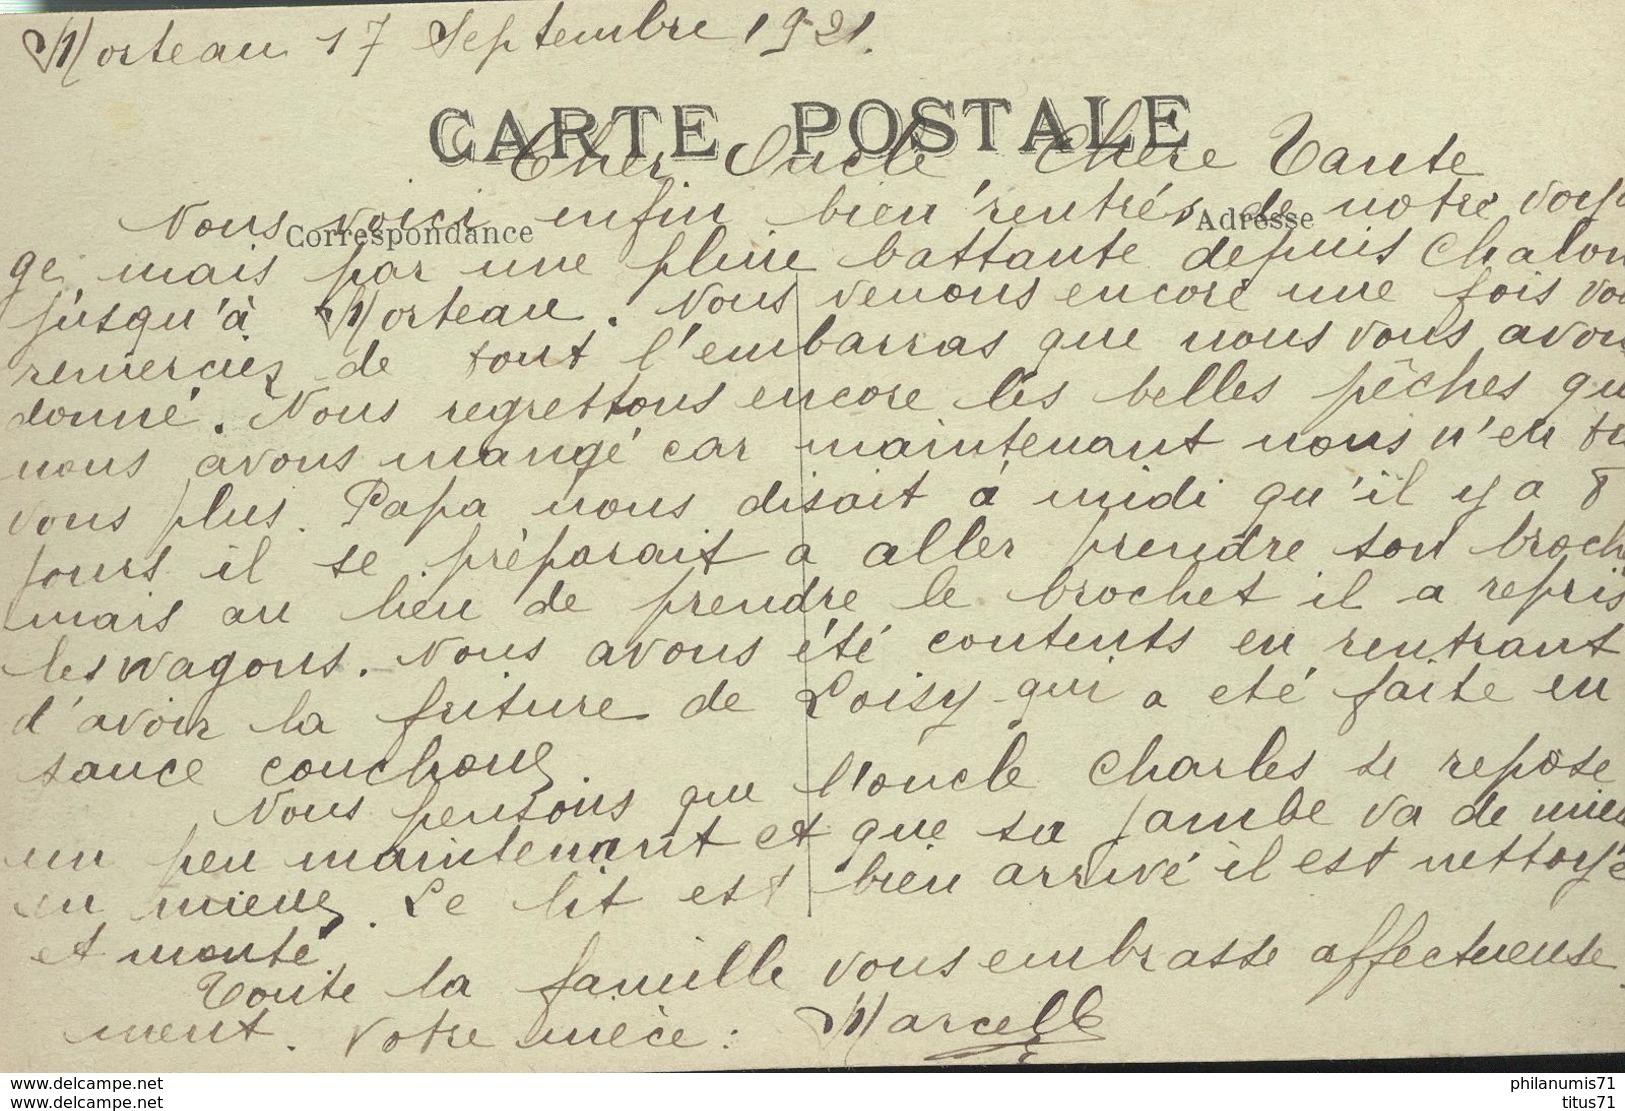 Morteau 17 Septembre 1921.
CARTE POSTALE
Cher Oncle Chère Tante
Correspondance
Adresse
Nous voici enfin bien rentrés de notre voya
ge, mais par une pluie battante depuis Chalon
jusqu'à Morteau. Nous venons encore une fois vou
remerciez de tout l'embarras que nous vous avons
donné. Nous regrettons encore les belles pêches qu
nous avons mangé car maintenant nous n'en trou
vons plus. Papa nous disait à midi qu'il y a 8
jours il se préparait a aller prendre son broch
mais au lieu de prendre le brochet il a repris
les wagons. Nous avons été contents en rentrant
d'avoir la friture de Loisy qui a eté faite en
sauce couchoux
Nous pensons que l'oncle Charles se repose
un peu maintenant et que sa jambe va de mieu
en mieux. Le lit est bien arrivé il est nettoyé
et monté
Toute la famille vous embrasse affectueuse
ment. Votre nièce : Marcelle
www.delcampe.net
www.delcampe.net
philanumis71
titus71